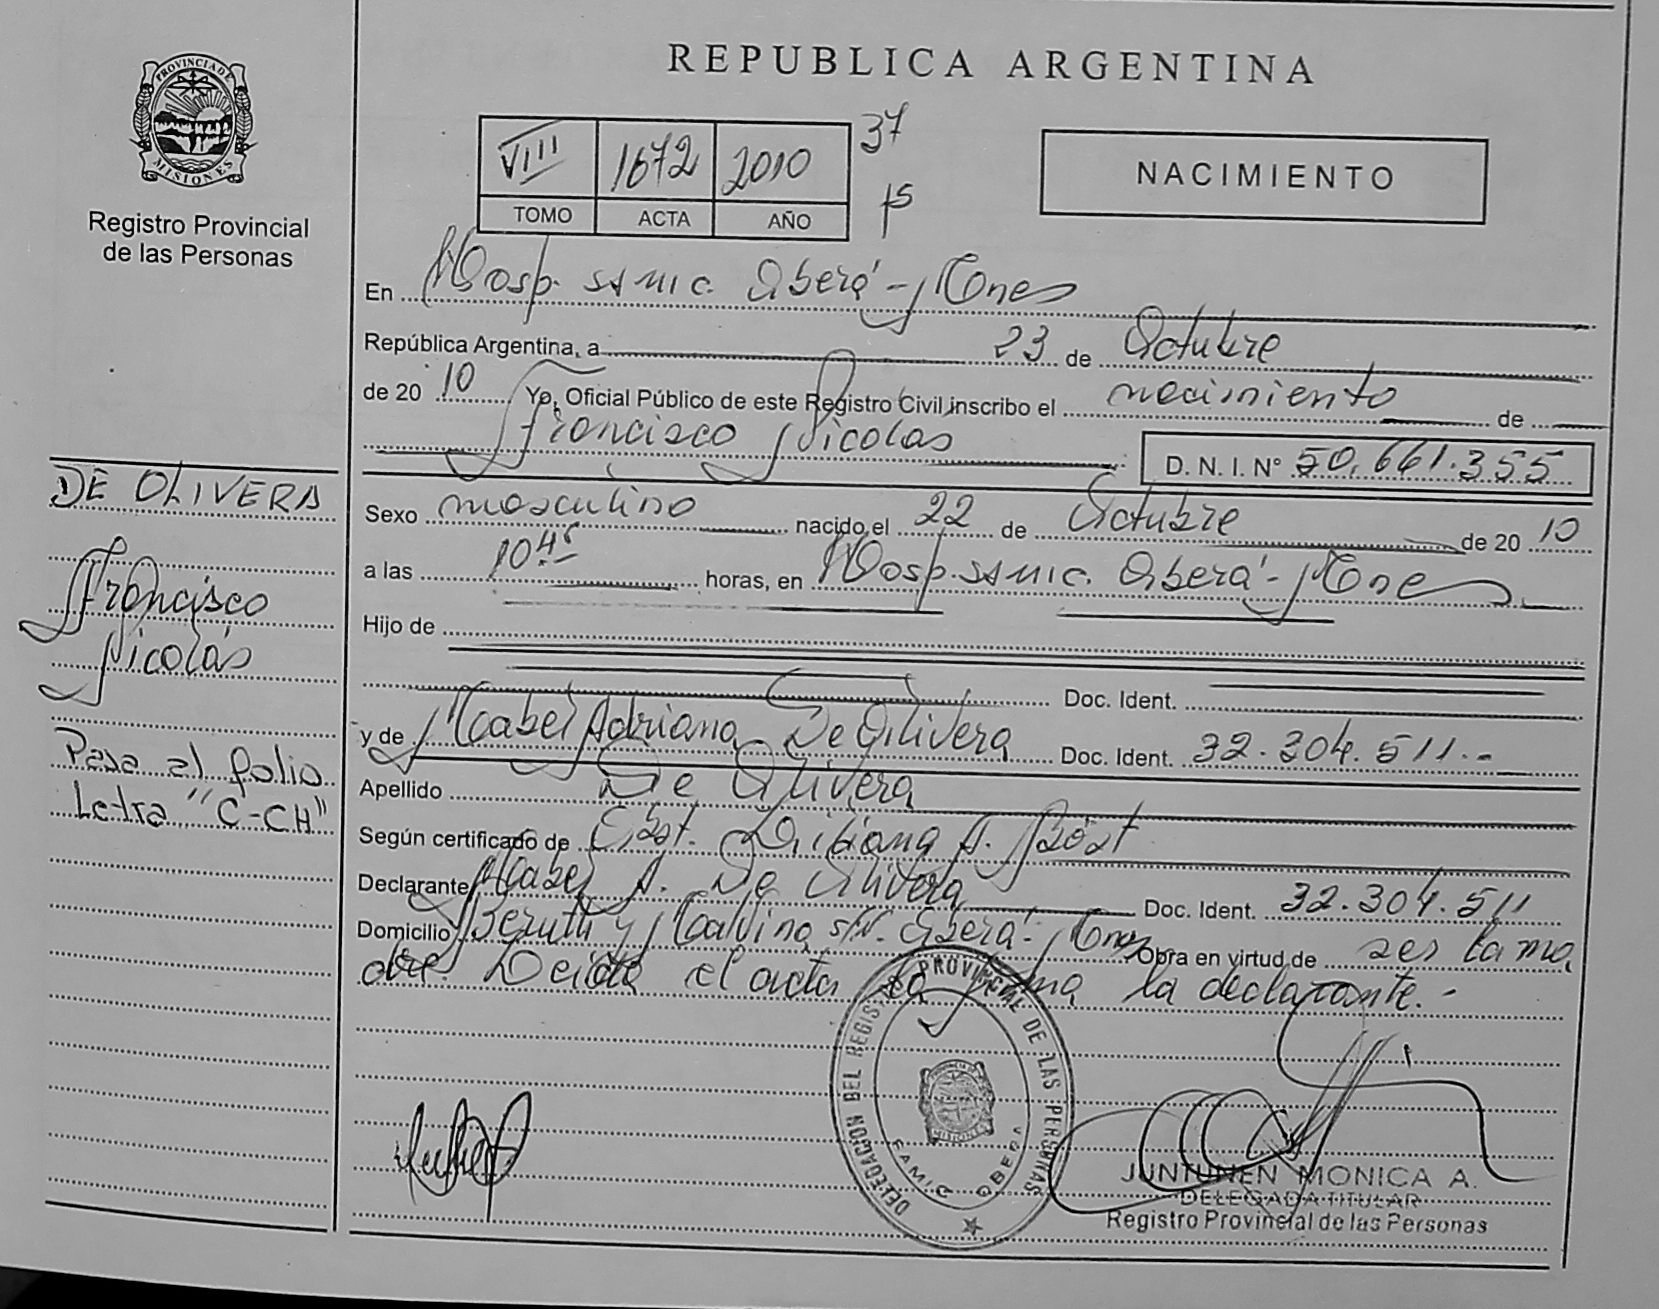 PROVINCIA DE
MISIONES
Registro Provincial
de las Personas
REPUBLICA ARGENTINA
VIII 1672 2010 37
TOMO ACTA AÑO 15
NACIMIENTO
En Hosp. SAMIC. Oberá - Mnes
República Argentina, a 23 de Octubre
de 20 10 Yo, Oficial Público de este Registro Civil inscribo el nacimiento de
Francisco Nicolás D. N. I. Nº 50.661.355
Sexo masculino nacido el 22 de Octubre de 20 10
a las 10 45 horas, en Hosp. SAMIC. Oberá - Mnes
Hijo de
Doc. Ident.
y de Mabel Adriana De Olivera Doc. Ident. 32.304.511.-
Apellido De Olivera
Según certificado de Obst. Bibiana A.
Declarante Mabel A. De Olivera Doc. Ident. 32.304.511
Domicilio Berutti y Malvina s/Nº. Oberá - Mnes Obra en virtud de ser la ma
dre Leida el acta la firma la declarante.-
DE OLIVERA
Francisco
Nicolás
Pasa al folio
Letra "C-CH"
DELEGACION DEL REGISTRO PROVINCIAL DE LAS PERSONAS
SAMIC OBERA
MISIONES
JUNTUNEN MONICA A.
DELEGADA TITULAR
Registro Provincial de las Personas